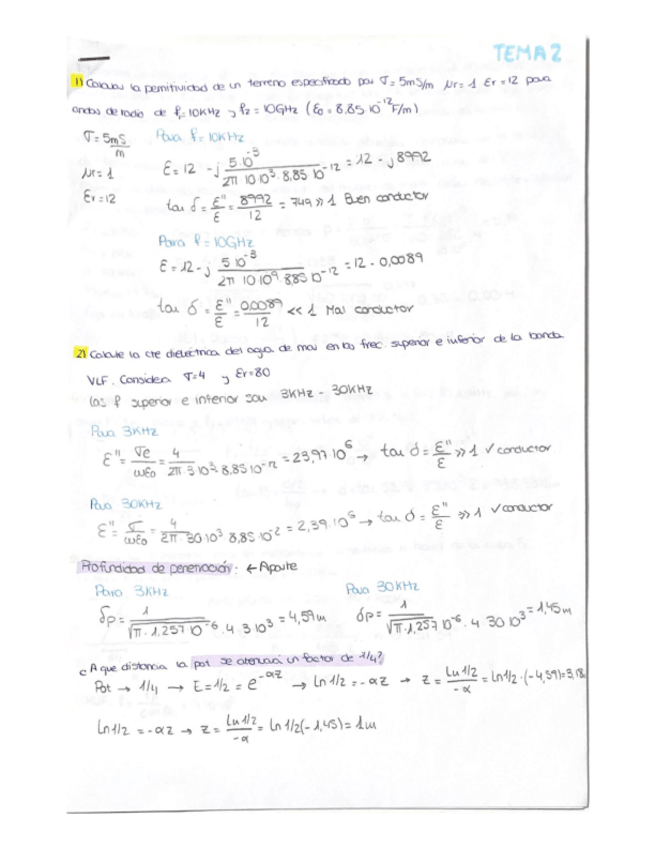 TEMA 2
1) Calcular la permitividad de un terreno especificado por σ = 5mS/m μr = 1 εr = 12 para
ondas de radio de f₁ = 10KHz y f₂ = 10GHz (ε₀ = 8,85 10⁻¹² F/m)
σ = 5mS/m Para f = 10KHz
μr = 1 ε = 12 - j 5·10⁻³ / 2π 10·10³ · 8,85 10⁻¹² = 12 - j 8992
εr = 12 tan δ = ε''/ε = 8992/12 = 749 >> 1 Buen conductor
Para f = 10GHz
ε = 12 - j 5 10⁻³ / 2π 10 10⁹ 8,85 10⁻¹² = 12 - 0,0089
tan δ = ε''/ε = 0,0089/12 << 1 Mal conductor
2) Calcule la cte dieléctrica del agua de mar en las frec. superior e inferior de la banda
VLF. Considera σ = 4 y εr = 80
Las f superior e inferior son 3KHz - 30KHz
Para 3KHz
ε'' = σe/ωε₀ = 4 / 2π · 3 10³ · 8,85 10⁻¹² = 23,97 10⁶ → tan δ = ε''/ε >> 1 √ conductor
Para 30KHz
ε'' = σ/ωε₀ = 4 / 2π 30 10³ 8,85 10⁻² = 2,39 · 10⁶ → tan δ = ε''/ε >> 1 √ conductor
Profundidad de penetración: ← Aparte
Para 3KHz Para 30KHz
δp = 1 / √π · 1,257 10⁻⁶ · 4 · 3 10³ = 4,59m δp = 1 / √π · 1,257 10⁻⁶ · 4 30 10³ = 1,45m
c A que distancia la pot se atenuará un factor de 1/4?
Pot → 1/4 → E = 1/2 = e^-αz → ln 1/2 = -αz → z = Ln 1/2 / -α = ln 1/2 · (-4,59) = 3,18
Ln 1/2 = -αz → z = Ln 1/2 / -α = ln 1/2 (-1,45) = 1m